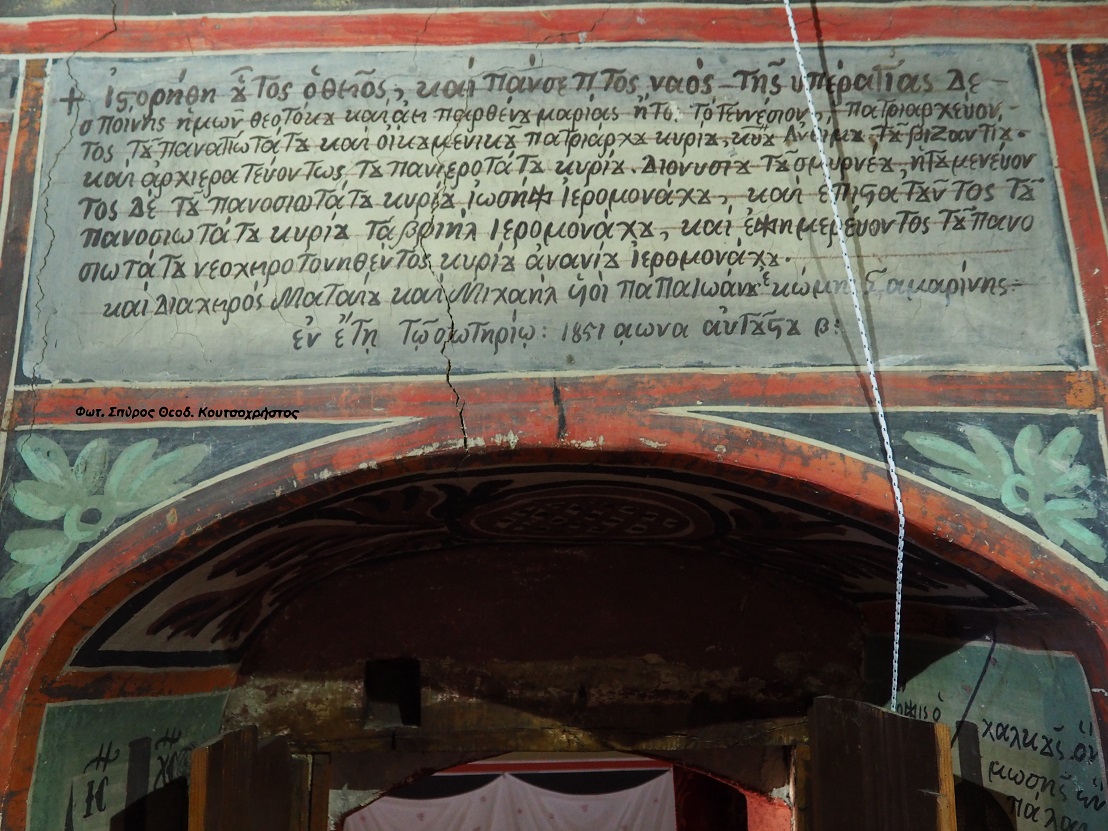 + Ἱϛορήθη ȣ̃Τος ὁ θεῖος, καὶ πάνσεπΤος ναὸς Τῆς ὑπεραΓίας Δε-
σποίνης ἡμῶν θεοΤόκȣ καὶ ἀει παρθένȣ μαρίας ἤΤι. Τὸ Γεννέσιον, παΤριαρχεύον-
Τος, Τȣ͂ παναΓιωΤάΤȣ καὶ οἰκȣμενικȣ͂ παΤριάρχȣ κυρίȣ, Ἀνθίμȣ, Τȣ͂ βιζανΤίȣ.
καὶ ἀρχιεραΤεύονΤως, Τȣ͂ πανιεροΤάΤȣ κυρίȣ. Διονυσίȣ Τȣ͂ σμυρνέȣ, ἡΓȣμενέυον
Τος Δὲ Τȣ͂ πανοσιωΤάΤȣ κυρίȣ ἰωσὴφ ἱερομονάχȣ, καὶ ἐπιϛαΤȣ͂νΤος Τȣ͂
πανοσιωΤάΤȣ κυρίȣ Γαβριὴλ ἱερομονάχȣ, καὶ ἐφημερέυονΤος Τȣ͂ πανο
σιωτάΤȣ νεοχηροΤονηθένΤος κυρίȣ ἀνανίȣ ἱερομονάχȣ.
καὶ Διαχηρὸς ΜαΤαίȣ καὶ Μιχαὴλ ὑιοὶ παΠαΙωάνȣ ἐκ κώμης Σαμαρίνης:
ἐν ἔΤη Τῷ σωΤηρίῳ: 1851 αωνα αὐΓȣ́ϛȣ β:
Φωτ. Σπύρος Θεοδ. Κουτσοχρήστος
χαλκȣ͂ς ὃν
μωσῆς ἐν
πάλαι